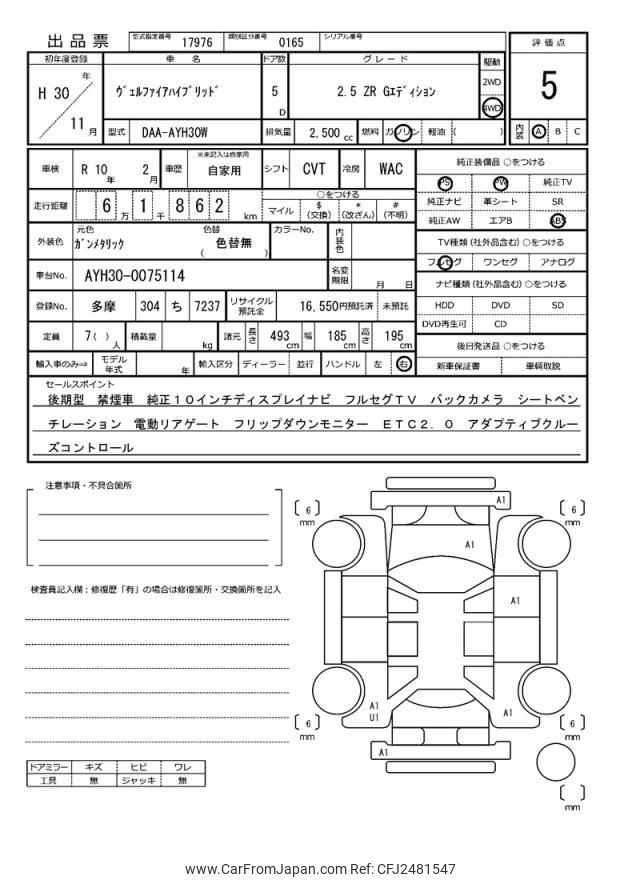 出品票 型式指定番号 17976 類別区分番号 0165 シリアル番号
初年度登録 車名 ドア数 グレード 駆動 評価点
H 30 年 11 月
ヴェルファイアハイブリッド 5 D 2.5 ZR Gエディション 2WD 4WD 5
型式 DAA-AYH30W 排気量 2,500 cc 燃料 ガソリン 軽油 ( ) 内装 A B C
車検 R 10 年 2 月 車歴 ※未記入は自家用 自家用 シフト CVT 冷房 WAC
走行距離 6 万 1 千 8 6 2 km
○をつける
マイル $ (交換) * (改ざん) # (不明)
外装色 元色 ガンメタリック 色替 色替無 ( ) カラーNo. 内装色
車台No. AYH30-0075114 名変期限 月 日
登録No. 多摩 304 ち 7237 リサイクル預託金 16,550円預託済 未預託
定員 7( ) 人 積載量 kg 諸元 長さ 493 cm 幅 185 cm 高さ 195 cm
輸入車のみ⇒ モデル年式 年 輸入区分 ディーラー 並行 ハンドル 左 右
純正装備品 ○をつける
PS PW 純正TV
純正ナビ 革シート SR
純正AW エアB ABS
TV種類(社外品含む) ○をつける
フルセグ ワンセグ アナログ
ナビ種類(社外品含む) ○をつける
HDD DVD SD
DVD再生可 CD
後日発送品 ○をつける
新車保証書 車輌取説
セールスポイント
後期型 禁煙車 純正10インチディスプレイナビ フルセグTV バックカメラ シートベン
チレーション 電動リアゲート フリップダウンモニター ETC2.0 アダプティブクルー
ズコントロール
注意事項・不具合箇所
検査員記入欄:修復歴「有」の場合は修復箇所・交換箇所を記入
ドアミラー キズ ヒビ ワレ
工具 無 ジャッキ 無
A1
〔 6 〕 mm
〔 6 〕 mm
A1
A1
A1
U1
A1
〔 6 〕 mm
〔 6 〕 mm
A1
〔 〕 mm
www.CarFromJapan.com Ref: CFJ2481547